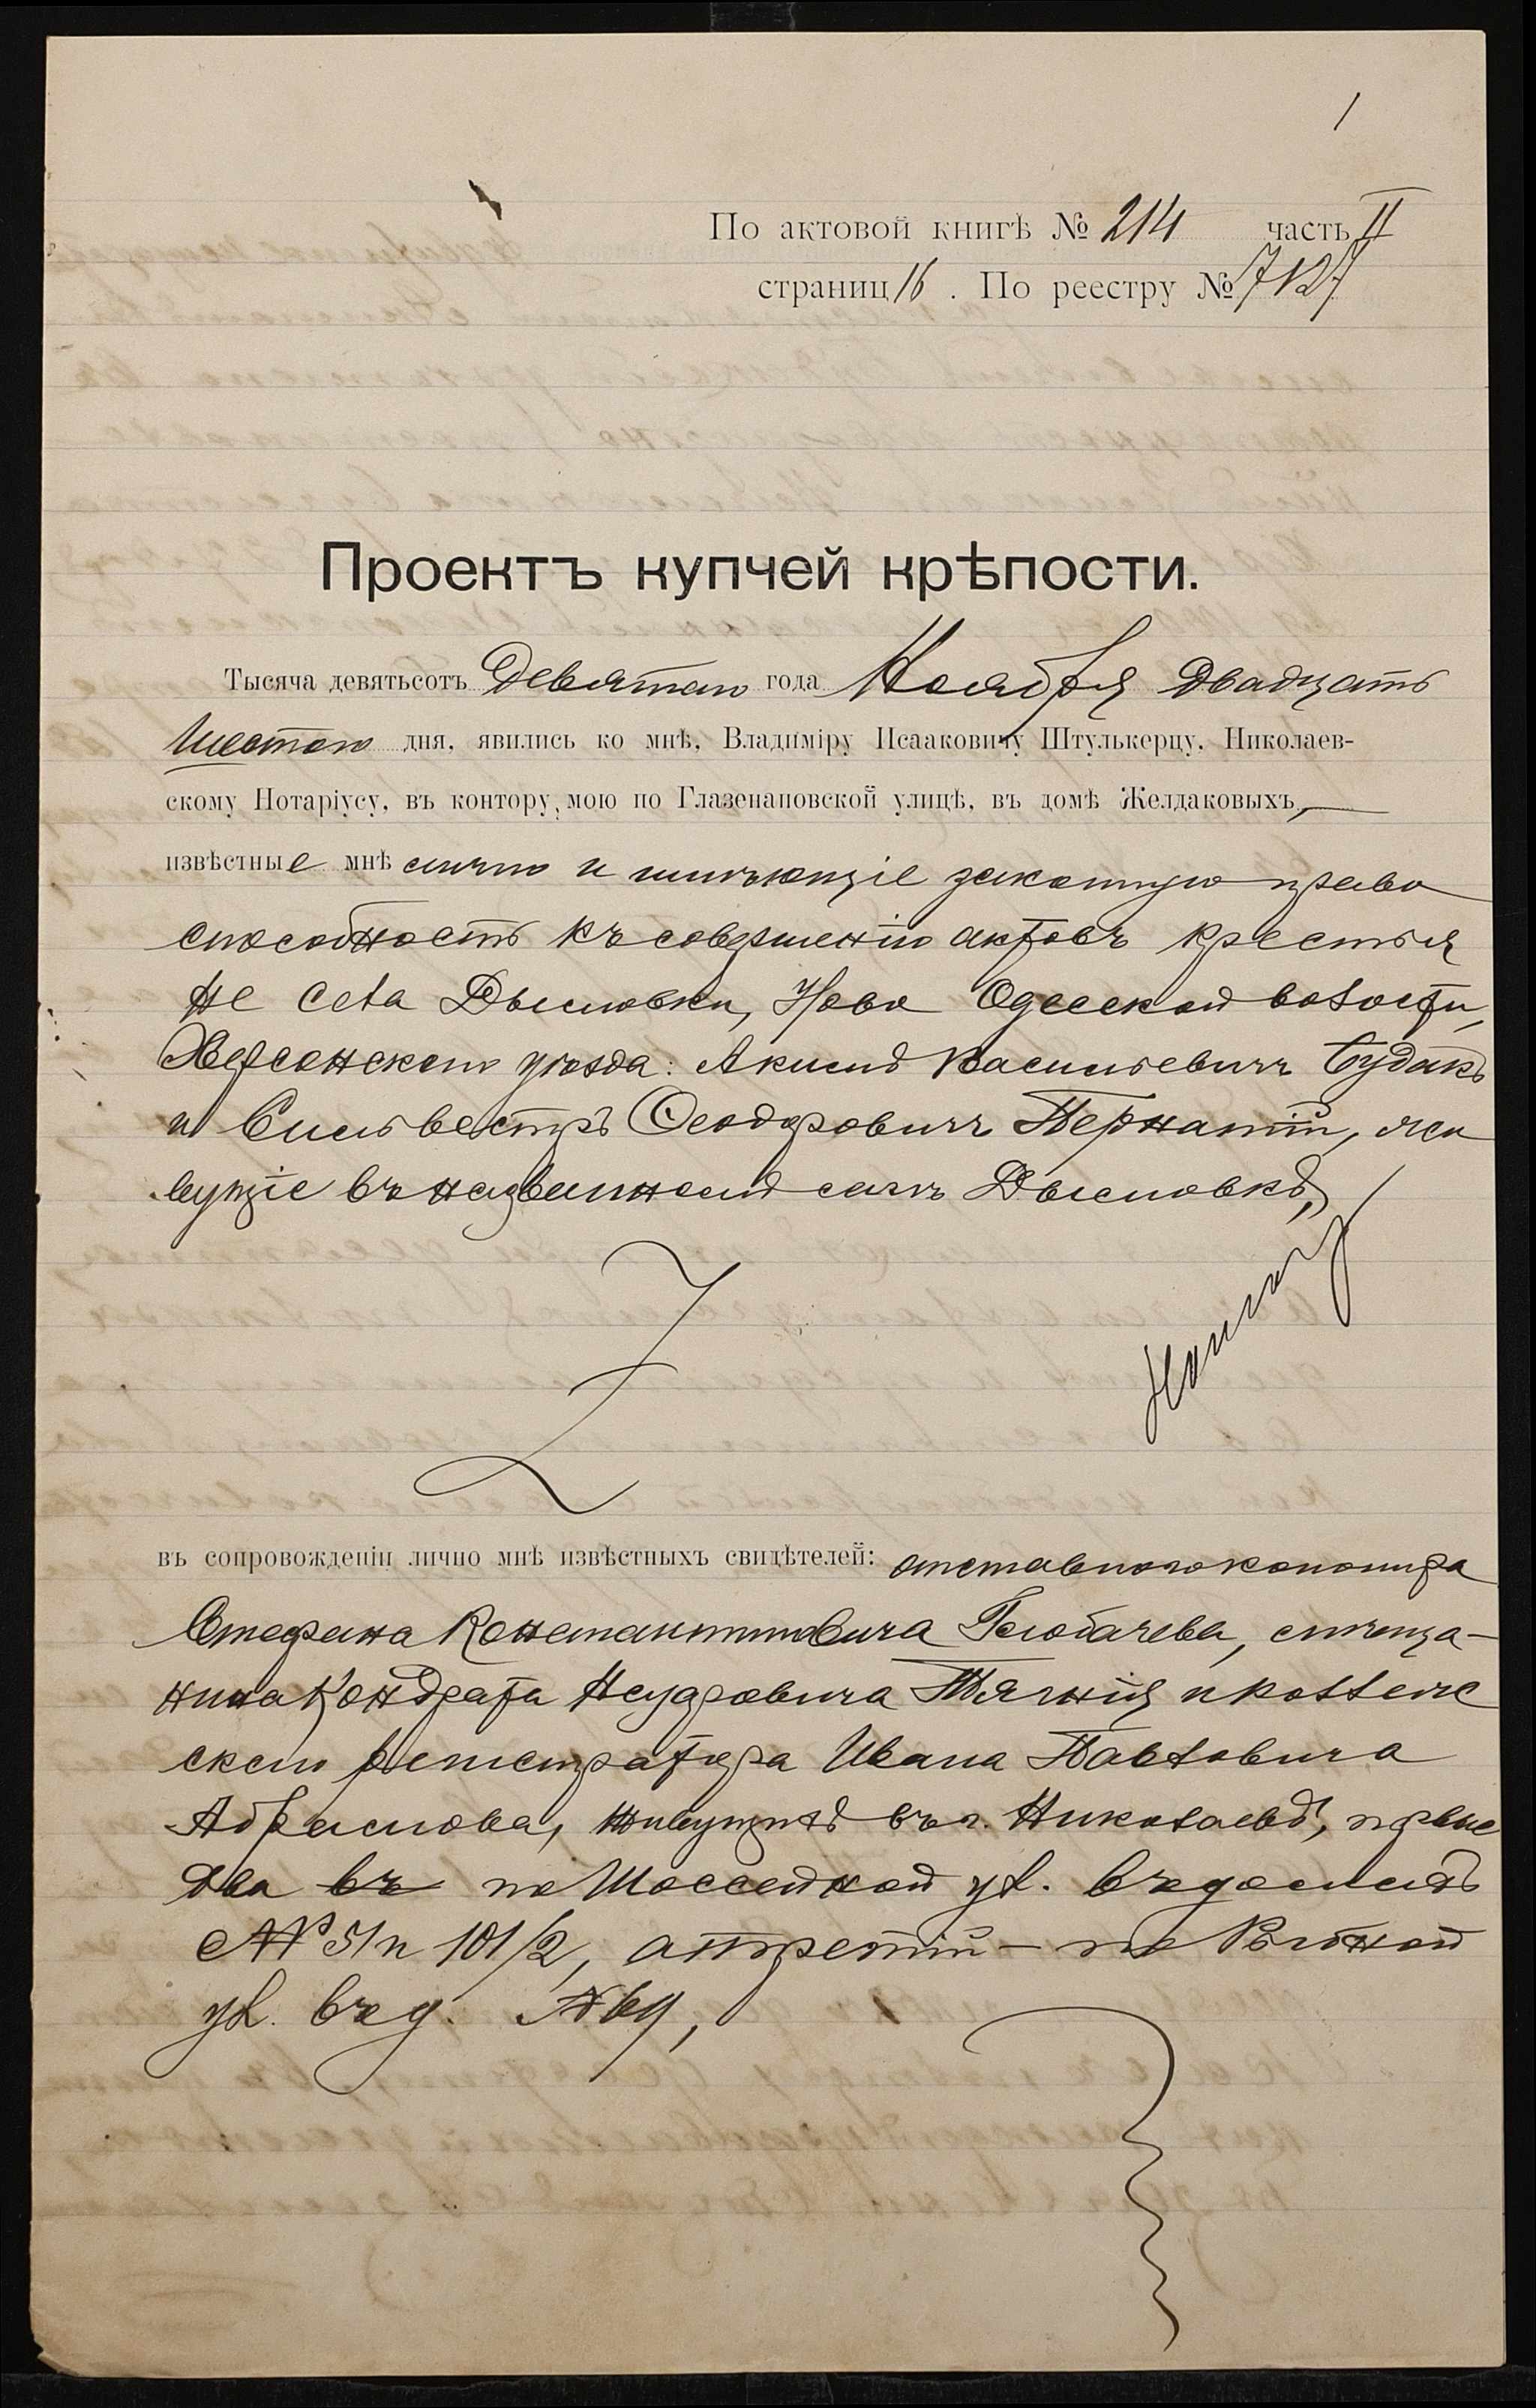 1
По актовой книгѣ № 214 часть II
страниц 16 . По реестру № 7127
Проектъ купчей крѣпости.
Тысяча девятьсотъ девятаго года Ноября двадцать
шестого дня, явились ко мнѣ, Владиміру Исааковичу Штулькерцу, Николаев-
скому Нотаріусу, въ контору мою по Глазенаповской улицѣ, въ домѣ Желдаковыхъ,
извѣстные мнѣ лично и имѣющіе законную право
способность къ совершенію актовъ крестья
не села Дымовки, Ново Одесской волости,
Херсонскаго уѣзда: Акимъ Васильевичъ Будакъ
и Сильвестръ Ѳеодоровичъ Пернатій, жи
вущіе въ названномъ селѣ Дымовкѣ,
въ сопровожденіи лично мнѣ извѣстныхъ свидѣтелей: отставного канонира
Стефана Константиновича Глюбачева, мѣща-
нина Кондрата Исидровича Тягнія и коллеж
скаго регистратора Ивана Павловича
Абрамова, живущихъ въ г. Николаевѣ, первые
два въ по Шоссейной ул. въ домахъ
№№ 51 и 101/2, а третій - по Рыбной
ул. въ д. №